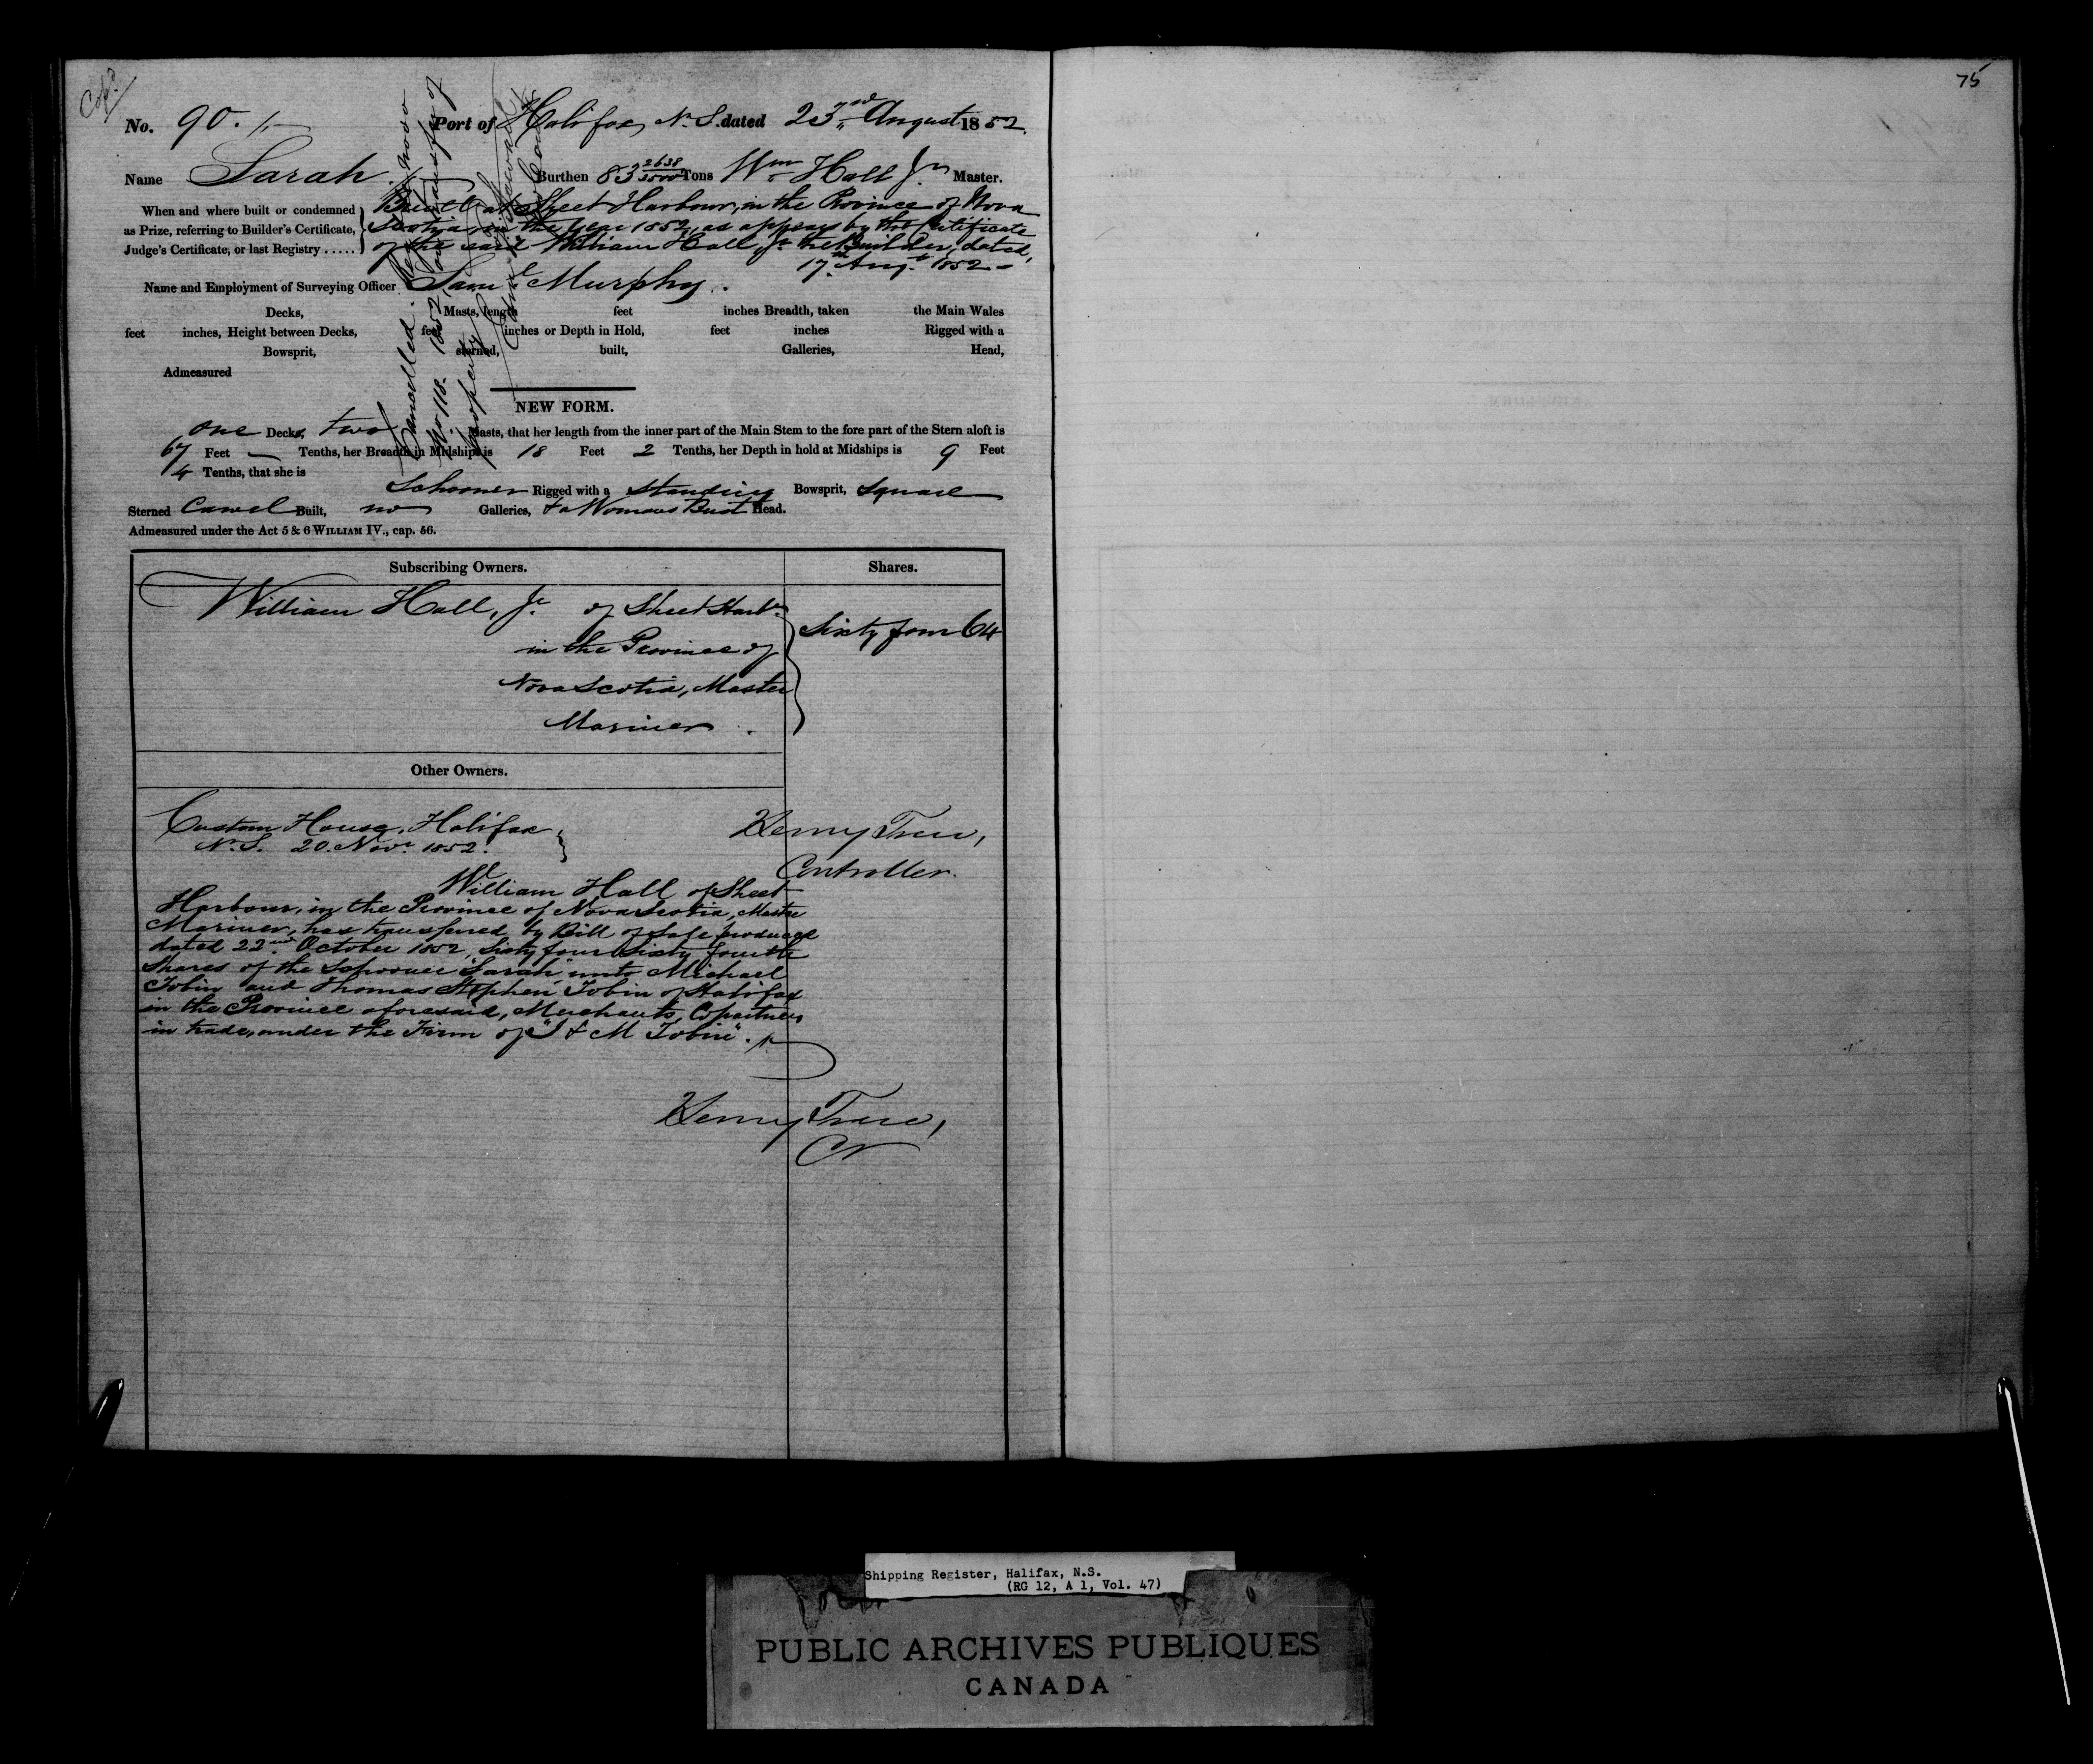 75
No. 90.
Port of Halifax, N.S. dated 23rd August 1852.
Name Sarah Burthen 83 2638/3500 Tons Wm Hall Jr Master.
When and where built or condemned as Prize, referring to Builder's Certificate, Judge's Certificate, or last Registry .....
Built at Sheet Harbour, in the Province of Nova
Scotia, in the year 1852, as appears by the Certificate
of the said William Hall Jr the Builder, dated,
17th Augt 1852
Name and Employment of Surveying Officer Saml Murphy.
Decks, Masts, length feet inches Breadth, taken the Main Wales
feet inches, Height between Decks, feet inches or Depth in Hold, feet inches Rigged with a
Bowsprit, sterned, built, Galleries, Head,
Admeasured
Cancelled.
No 118. 1852
property
NEW FORM.
one Decks, two Masts, that her length from the inner part of the Main Stem to the fore part of the Stern aloft is
67 Feet — Tenths, her Breadth in Midships is 18 Feet 2 Tenths, her Depth in hold at Midships is 9 Feet
4 Tenths, that she is
Schooner Rigged with a standing Bowsprit, Square
Sterned Carvel Built, no Galleries, & a Womans Bust Head.
Admeasured under the Act 5 & 6 WILLIAM IV., cap. 56.
Subscribing Owners. Shares.
William Hall, Jr. of Sheet Harbr
in the Province of
Nova Scotia, Master
Mariner.
Sixty four 64
Other Owners.
Custom House, Halifax
N.S. 20. Novr. 1852.
Henry Trew,
Controller.
William Hall of Sheet
Harbour, in the Province of Nova Scotia, Master
Mariner, has transferred by Bill of Sale produced
dated 22nd October 1852, Sixty four Sixty fourth
Shares of the Schooner "Sarah" unto Michael
Tobin and Thomas Stephen Tobin of Halifax
in the Province aforesaid, Merchants, Copartners
in trade, under the Firm of "J & M Tobin".
Henry Trew,
Cr
Shipping Register, Halifax, N.S.
(RG 12, A 1, Vol. 47)
PUBLIC ARCHIVES PUBLIQUES
CANADA